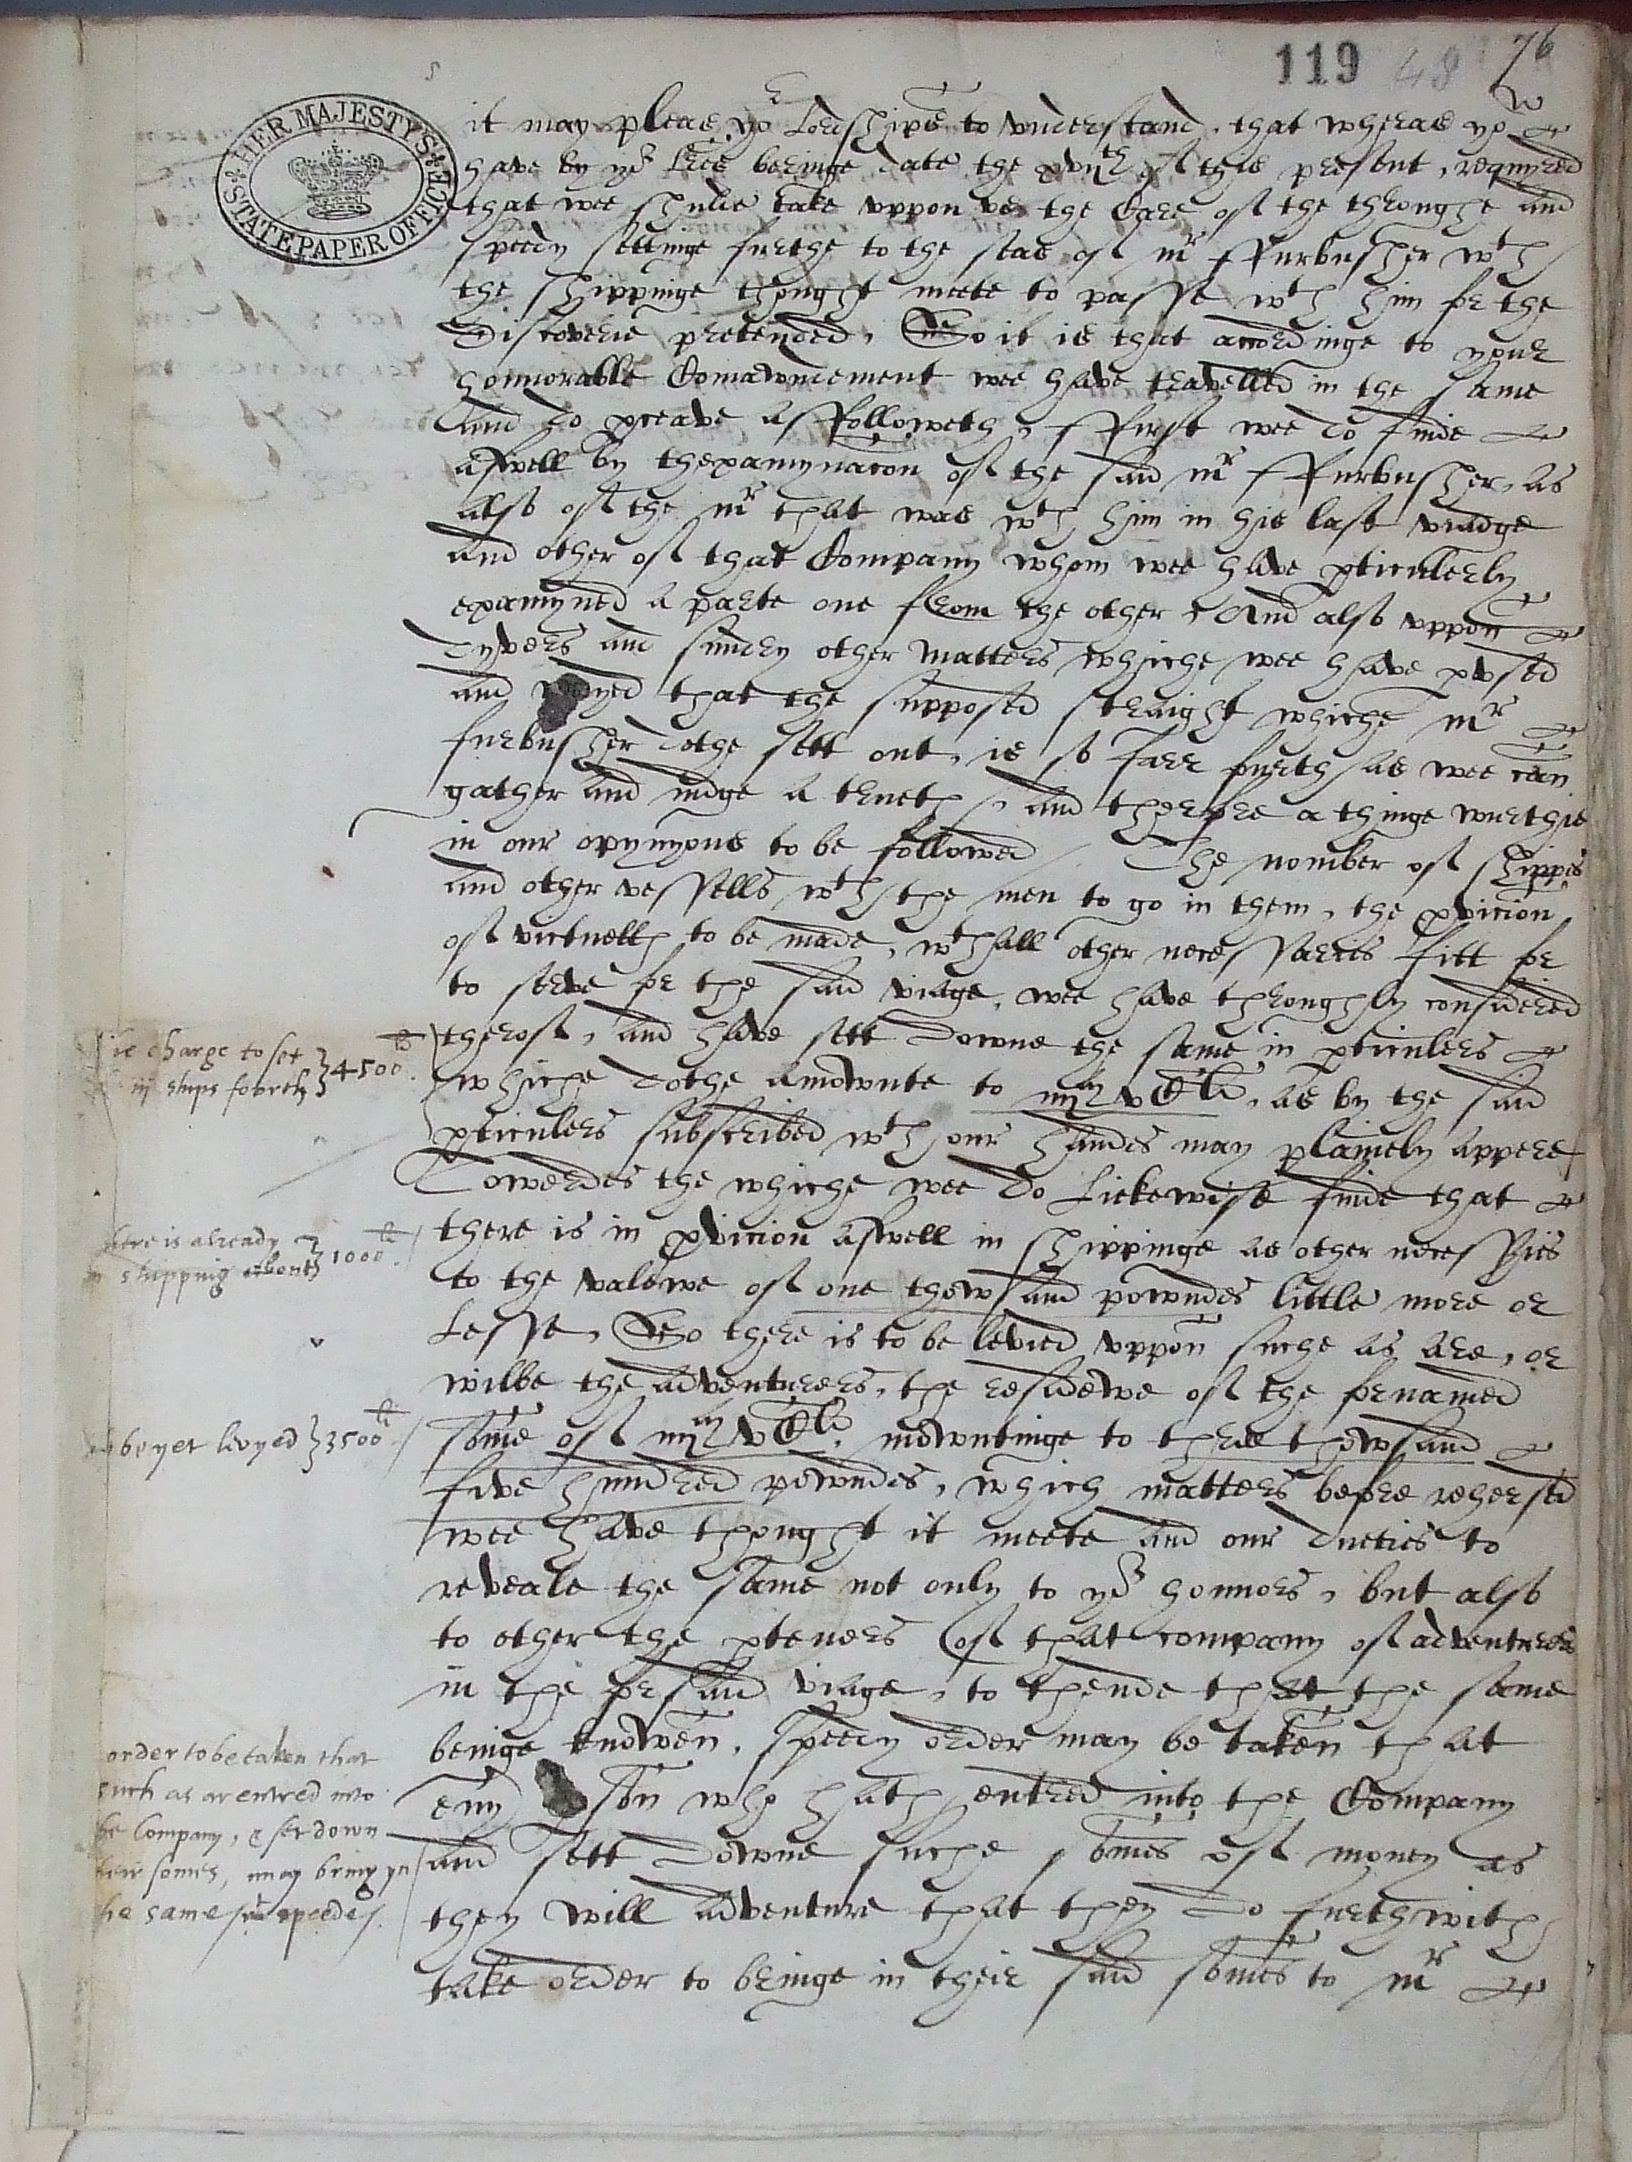 119 48 76
HER MAJESTY'S STATE PAPER OFFICE
it may pleas yor Lordshipes to understand, that wheras yor
have by yor lres beringe date the xviith of this present, requyred
that wee shulde take uppon us the Care of the throughe and
speedy settinge furthe to the seas of mr Ffurbusher wth
the shippinge thought meete to passe wth him for the
Discoverie pretended, So it is that accordinge to your
honnorable Comawndement wee have travelled in the same
And do preave as ffolloweth, Ffirst wee do finde
aswell by thexamynacon of the said mr Ffurbusher, as
also of the mr that was wth him in his last viadge
and other of that Company whom wee have pticulerly
examyned a parte one from the other And also uppon
Dyvers and sundry other matters whiche wee have pused
and wayed that the supposed straight whiche mr
furbusher dothe sett out, is so farr furth as wee can
gather and iudge a trueth, and therfore a thinge wurthie
in our opynyons to be followed / The nomber of shippes
and other vessells wth the men to go in them, the pvicion
of victuells to be made, wth all other necessaries fitt for
to serve for the said viage, wee have throughly considered
therof, and have sett downe the same in pticulers
whiche dothe amownte to iiiim vC li, as by the said
pticulers subscribed wth our handes may plainely appere
Towerdes the whiche wee do lickewise finde that
there is in pvicion aswell in shippinge as other necessries
to the valewe of one thowsand powndes little more or
Lesse, So there is to be levied uppon suche as are, or
wilbe the adventurers, the residewe of the fornamed
some of iiiim vC li. mowntinge to three thowsand
five hundred powndes, which matters before rehersed
wee have thought it meete and our dueties to
reveale the same not only to yor honnors, but also
to other the pteners of that company of adventrers
in the forsaid viage, to thende that the same
beinge knowen, speedy order may be taken that
evry pson who hath entred into the Company
and sett downe suche somes of money as
they will adventure that they do furthwith
take order to bringe in their said somes to mr
ie charge to set
iij ships foorth } 4500 li
here is already
in shipping about } 1000 li.
be yet levyed } 3500 li
order to be taken that
such as ar entred into
he Company, & set down
heir somes, may bring yn
he same wth speede /.